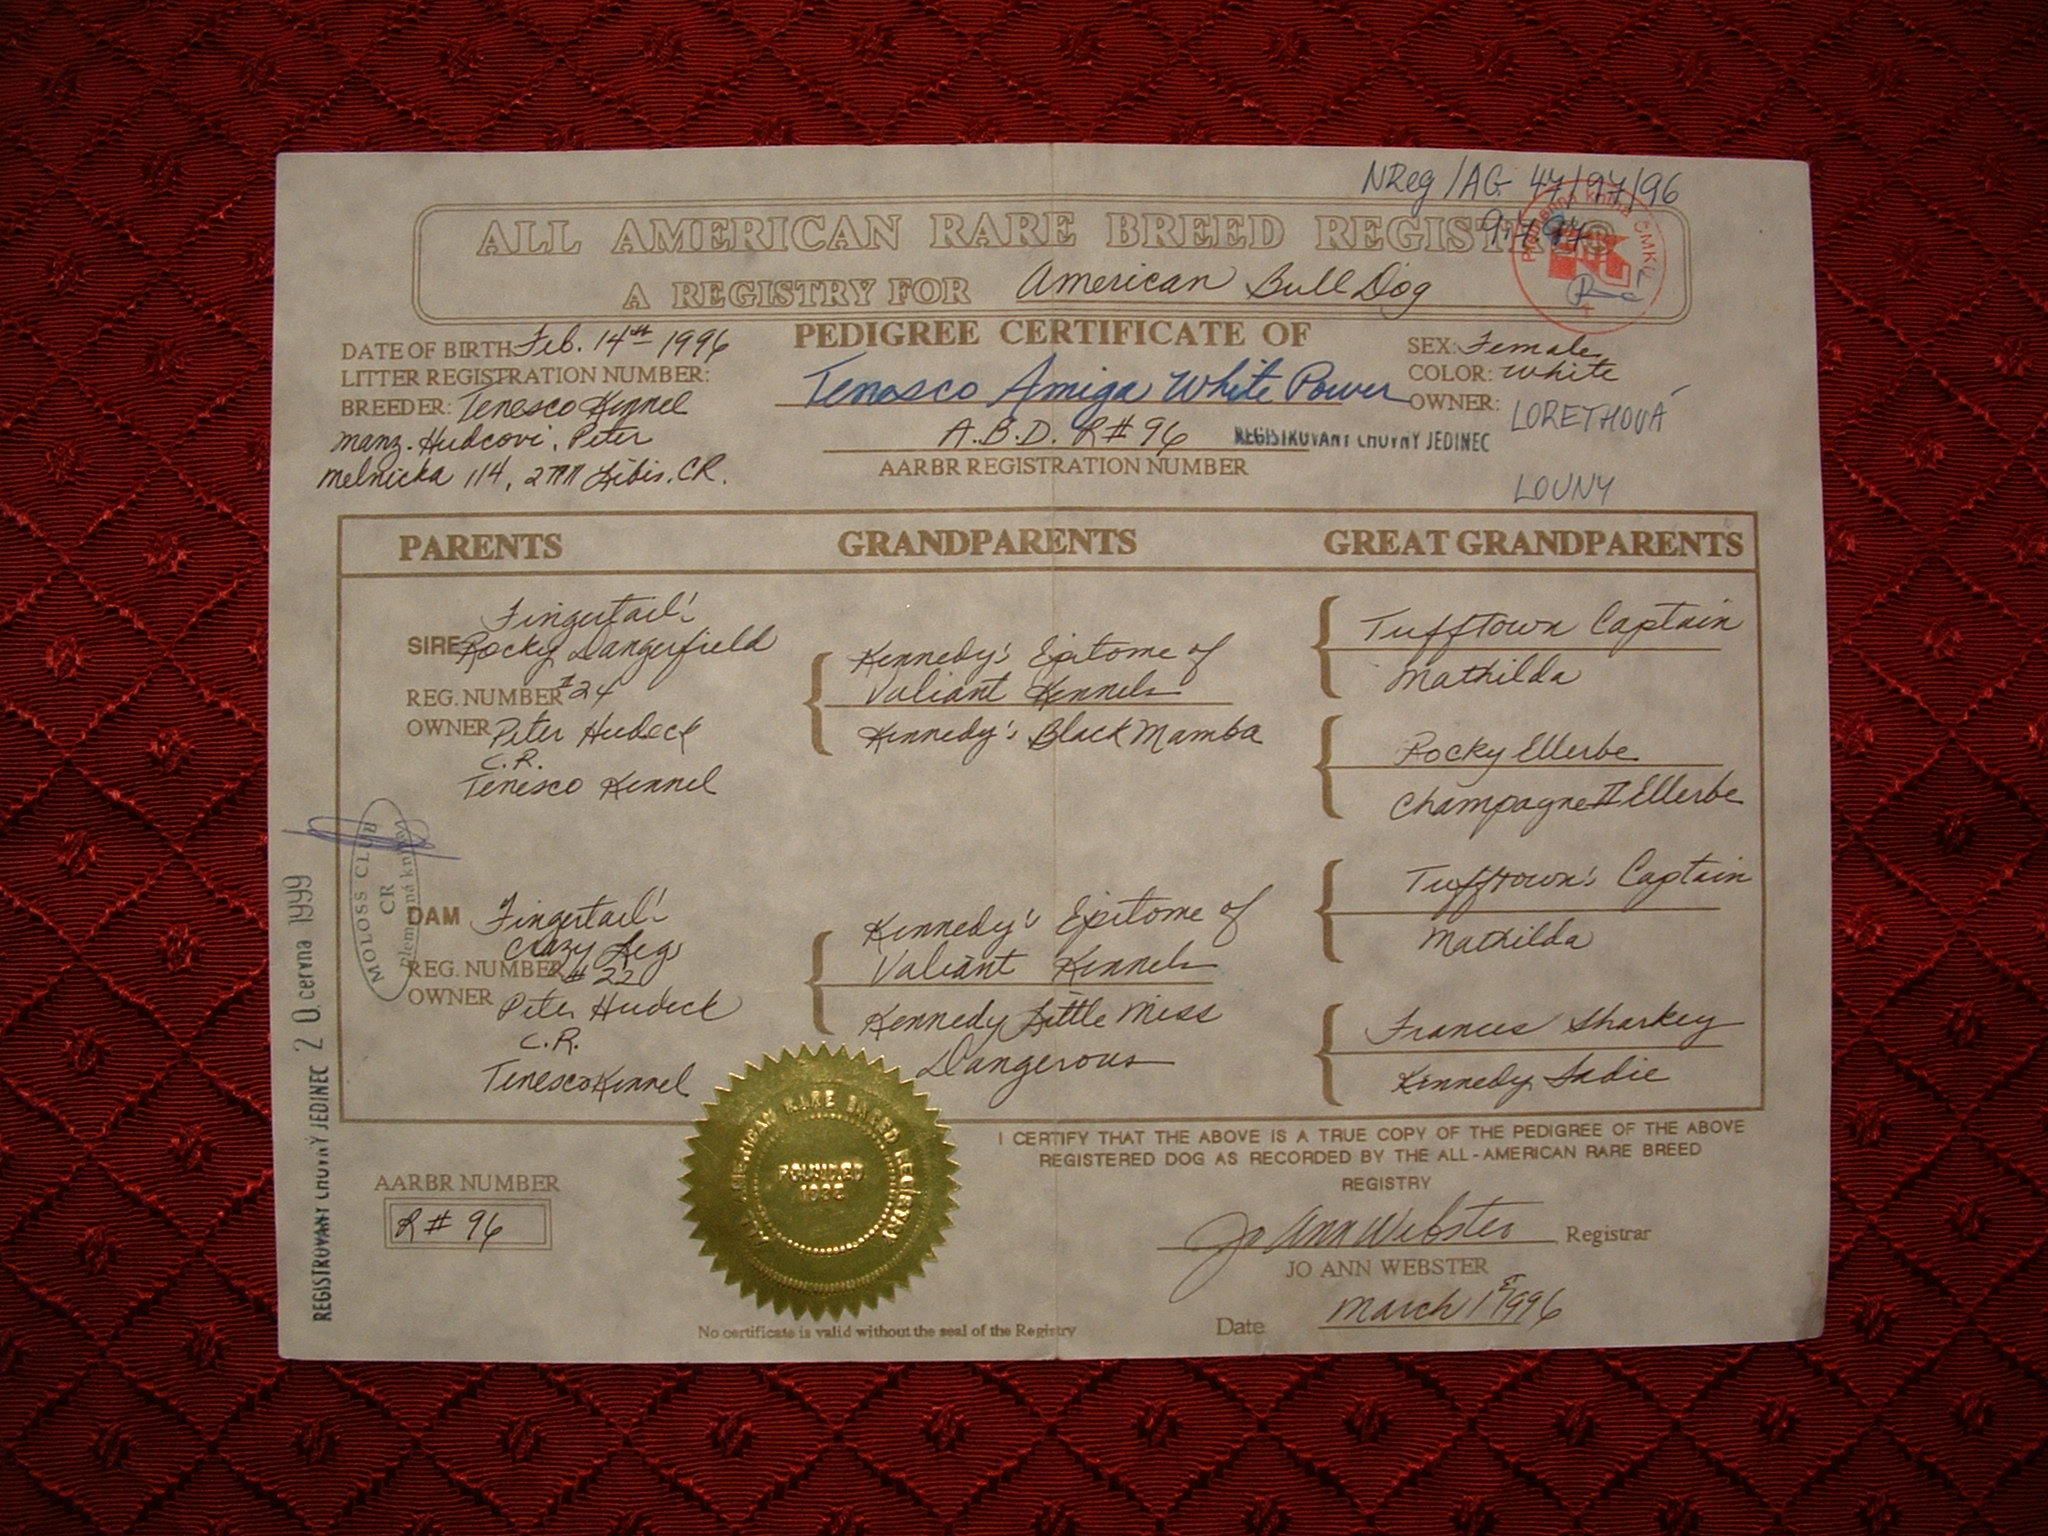 NReg/AG 47/97/96
ALL AMERICAN RARE BREED
A REGISTRY FOR American Bull Dog
PEDIGREE CERTIFICATE OF
Tenasco Amiga White Power
A.B.D. R# 96
AARBR REGISTRATION NUMBER
REGISTROVANÝ CHOVNÝ JEDINEC
DATE OF BIRTH Feb. 14th 1996
LITTER REGISTRATION NUMBER:
BREEDER: Tenesco Kennel
Manz. Hudcovi, Peter
Melnicka 114, Libis, CR.
SEX: Female
COLOR: White
OWNER: LORETHOVÁ
LOUNY
PARENTS
GRANDPARENTS
GREAT GRANDPARENTS
Fingertail's
SIRE Rocky Dangerfield
REG. NUMBER #24
OWNER Peter Hudeck
C.R.
Tenesco Kennel
DAM Fingertail's
Crazy Legs
REG. NUMBER #22
OWNER Peter Hudeck
C.R.
Tenesco Kennel
Kennedy's Epitome of
Valiant Kennels
Kennedy's Black Mamba
Kennedy's Epitome of
Valiant Kennels
Kennedy Little Miss
Dangerous
Tufftown Captain
Mathilda
Rocky Ellerbe
Champagne II Ellerbe
Tufftown's Captain
Mathilda
Frances Sharkey
Kennedy Sadie
MOLOSS CLUB
CR
plemenná kniha
REGISTROVANÝ CHOVNÝ JEDINEC 20. června 1999
AARBR NUMBER
R# 96
ALL AMERICAN RARE BREED REGISTRY
FOUNDED
I CERTIFY THAT THE ABOVE IS A TRUE COPY OF THE PEDIGREE OF THE ABOVE
REGISTERED DOG AS RECORDED BY THE ALL-AMERICAN RARE BREED
REGISTRY
Jo Ann Webster Registrar
JO ANN WEBSTER
Date March 1996
No certificate is valid without the seal of the Registry